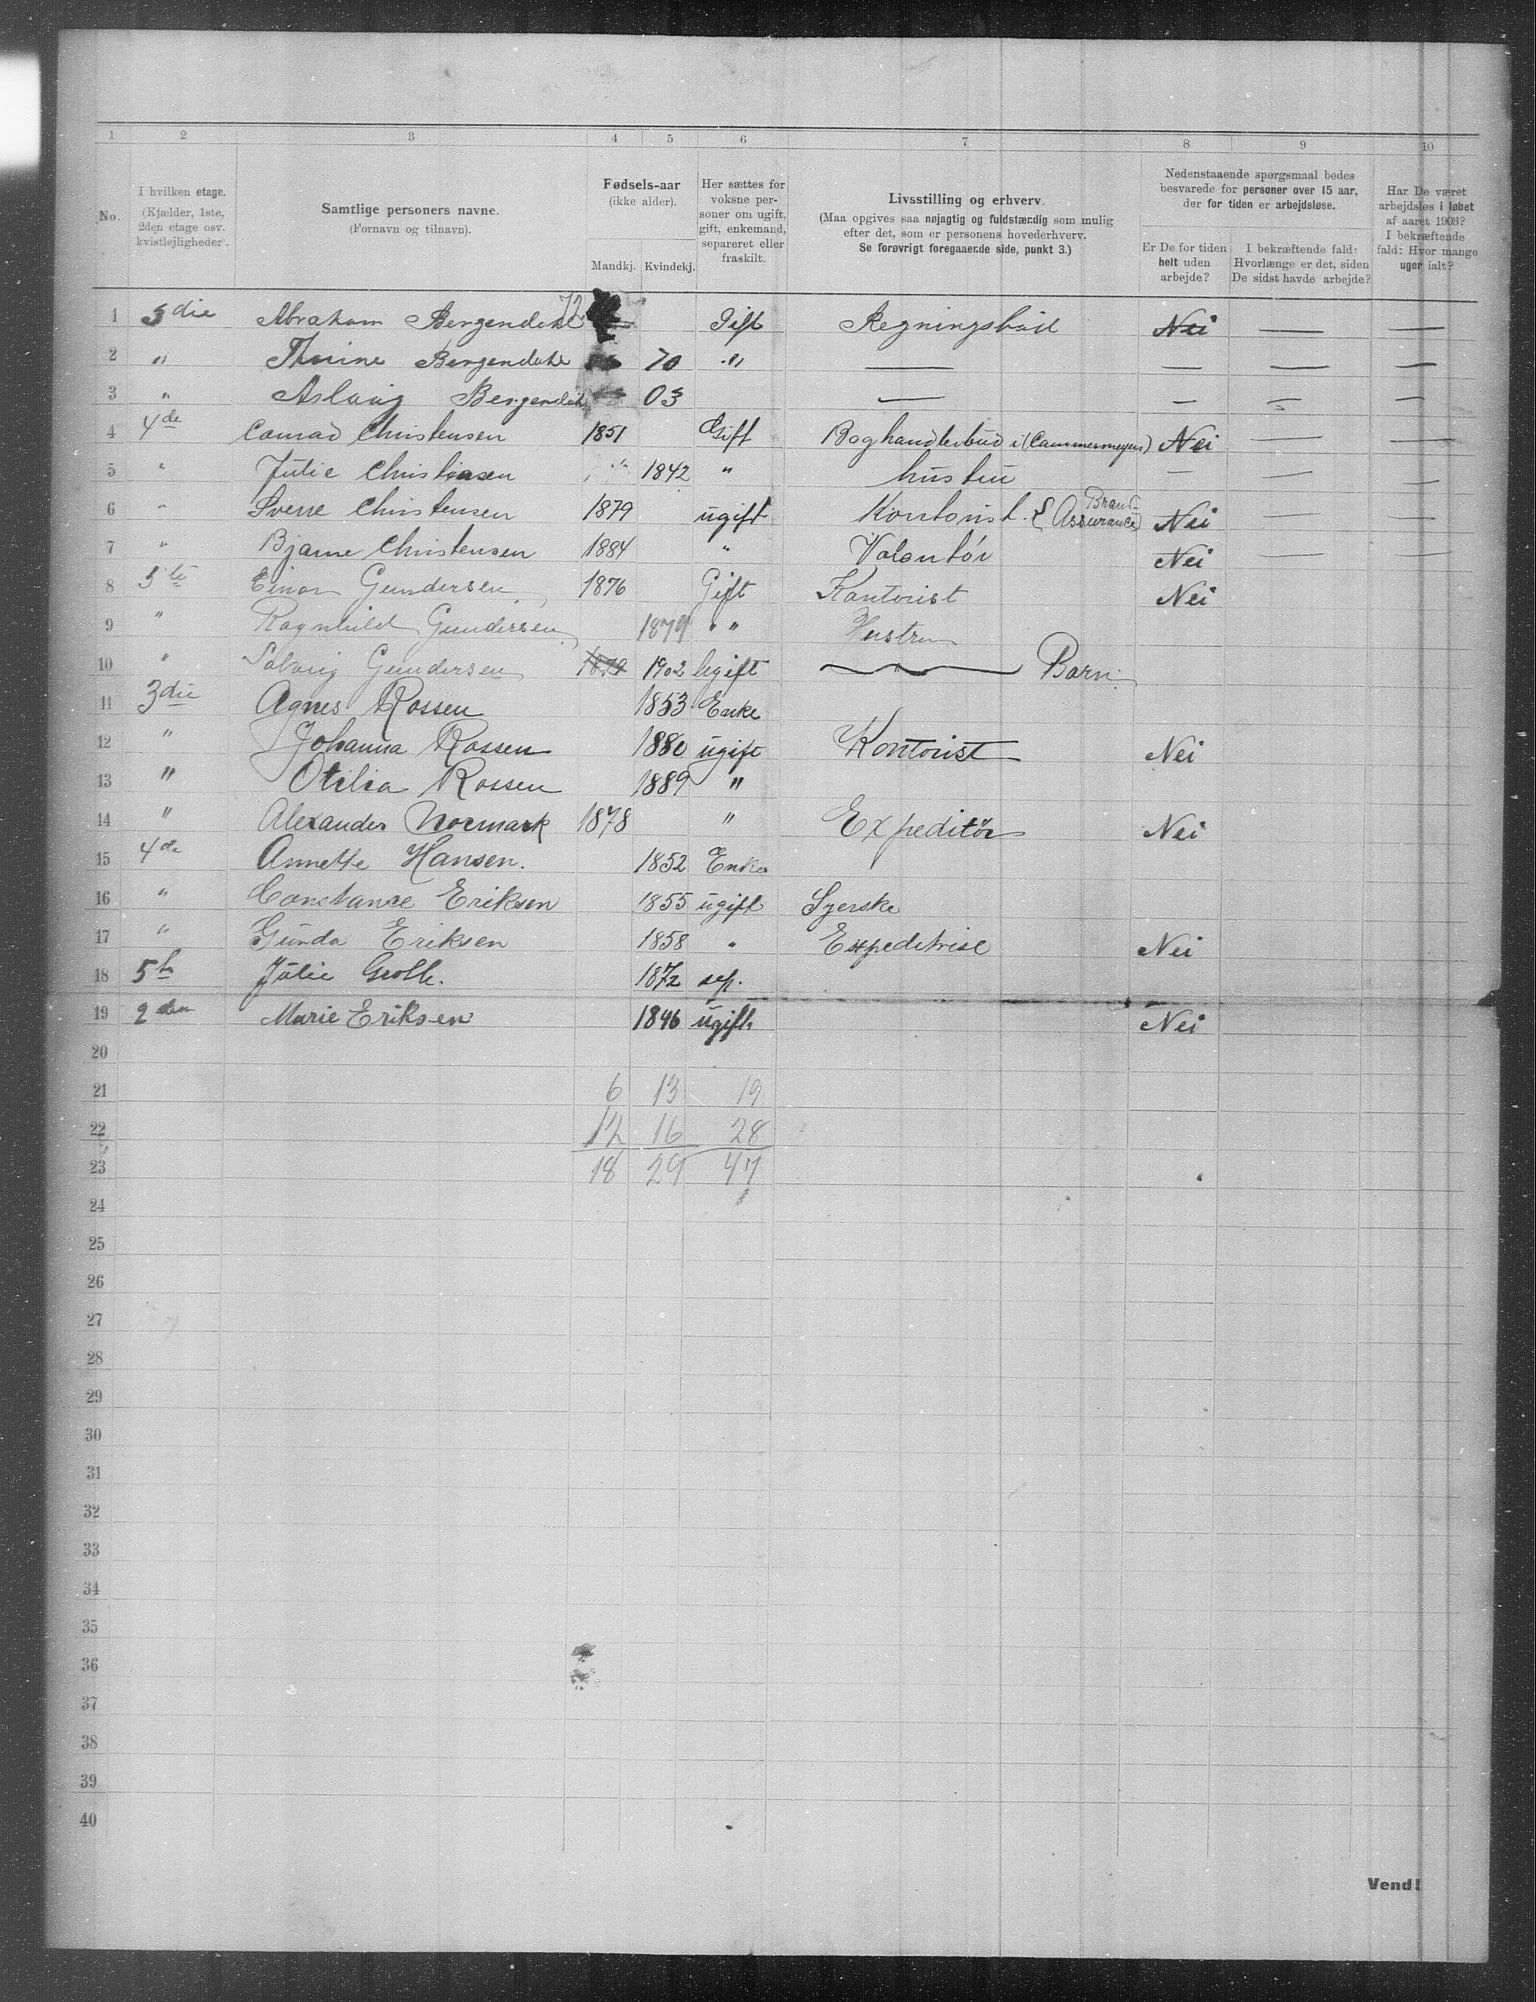 1 2 3 4 5 6 7 8 9 10
No.
I hvilken etage.
(Kjælder, 1ste,
2den etage osv.
kvistlejligheder).
Samtlige personers navne.
(Fornavn og tilnavn).
Fødsels-aar
(ikke alder).
Mandkj. Kvindekj.
Her sættes for
voksne per-
soner om ugift,
gift, enkemand,
separeret eller
fraskilt.
Livsstilling og erhverv.
(Maa opgives saa nøjagtig og fuldstændig som mulig
efter det, som er personens hovederhverv.
Se forøvrigt foregaaende side, punkt 3.)
Nedenstaaende spørgsmaal bedes
besvarede for personer over 15 aar,
der for tiden er arbejdsløse.
Er De for tiden
helt uden
arbejde?
I bekræftende fald:
Hvorlænge er det, siden
De sidst havde arbejde?
Har De været
arbejdsløs i løbet
af aaret 1903?
I bekræftende
fald: Hvor mange
uger ialt?
1 3die Abraham Bergendahl 72 Gift Regningsbud Nei — —
2 " Thorine Bergendahl 70 " — — — —
3 " Aslaug Bergendahl 03 — — — —
4 4de Conrad Christensen 1851 Gift Boghandlerbud i (Cammermeyer) Nei — —
5 " Julie Christiansen " 1842 " hustru — — —
6 " Sverre Christensen 1879 ugift Kontorist. (Brand-Assurance) Nei — —
7 " Bjarne Christensen 1884 " Volontør Nei — —
8 5te Einar Gundersen 1876 Gift Kontorist Nei
9 " Ragnhild Gundersen 1879 " " Hustru
10 " Solveig Gundersen 1879 1902 Ugift — " — Barn
11 3die Agnes Rossen 1853 Enke
12 " Johanna Rossen 1880 ugift Kontorist Nei
13 " Otilia Rossen 1889 "
14 " Alexander Normark 1878 " Expeditør Nei
15 4de Annette Hansen. 1852 Enke
16 " Constance Eriksen 1855 ugift Syerske
17 " Gunda Eriksen 1858 " Expeditrise Nei
18 5te Julie Groth. 1872 sep.
19 2den Marie Eriksen 1846 ugift. Nei
20
21 6 13 19
22 12 16 28
23 18 29 47
24
25
26
27
28
29
30
31
32
33
34
35
36
37
38
39
40
Vend!